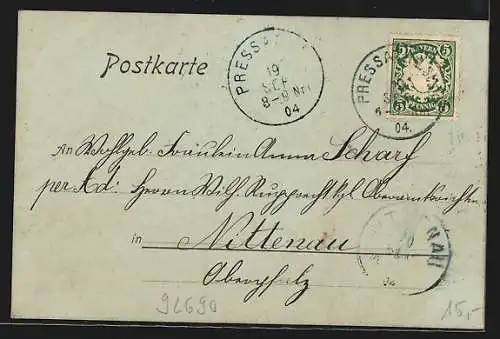 Postkarte
PRESSA
19
SEP
8-9 Nm
04
BAYERN
5 5
PFENNIG
PRESSA
04.
An Wohlgeb. Fräulein Anna Scharf
per Ad: Herrn Wilh. Rupprecht kgl.
in Nittenau
Oberpfalz
NAU
92690
15,-